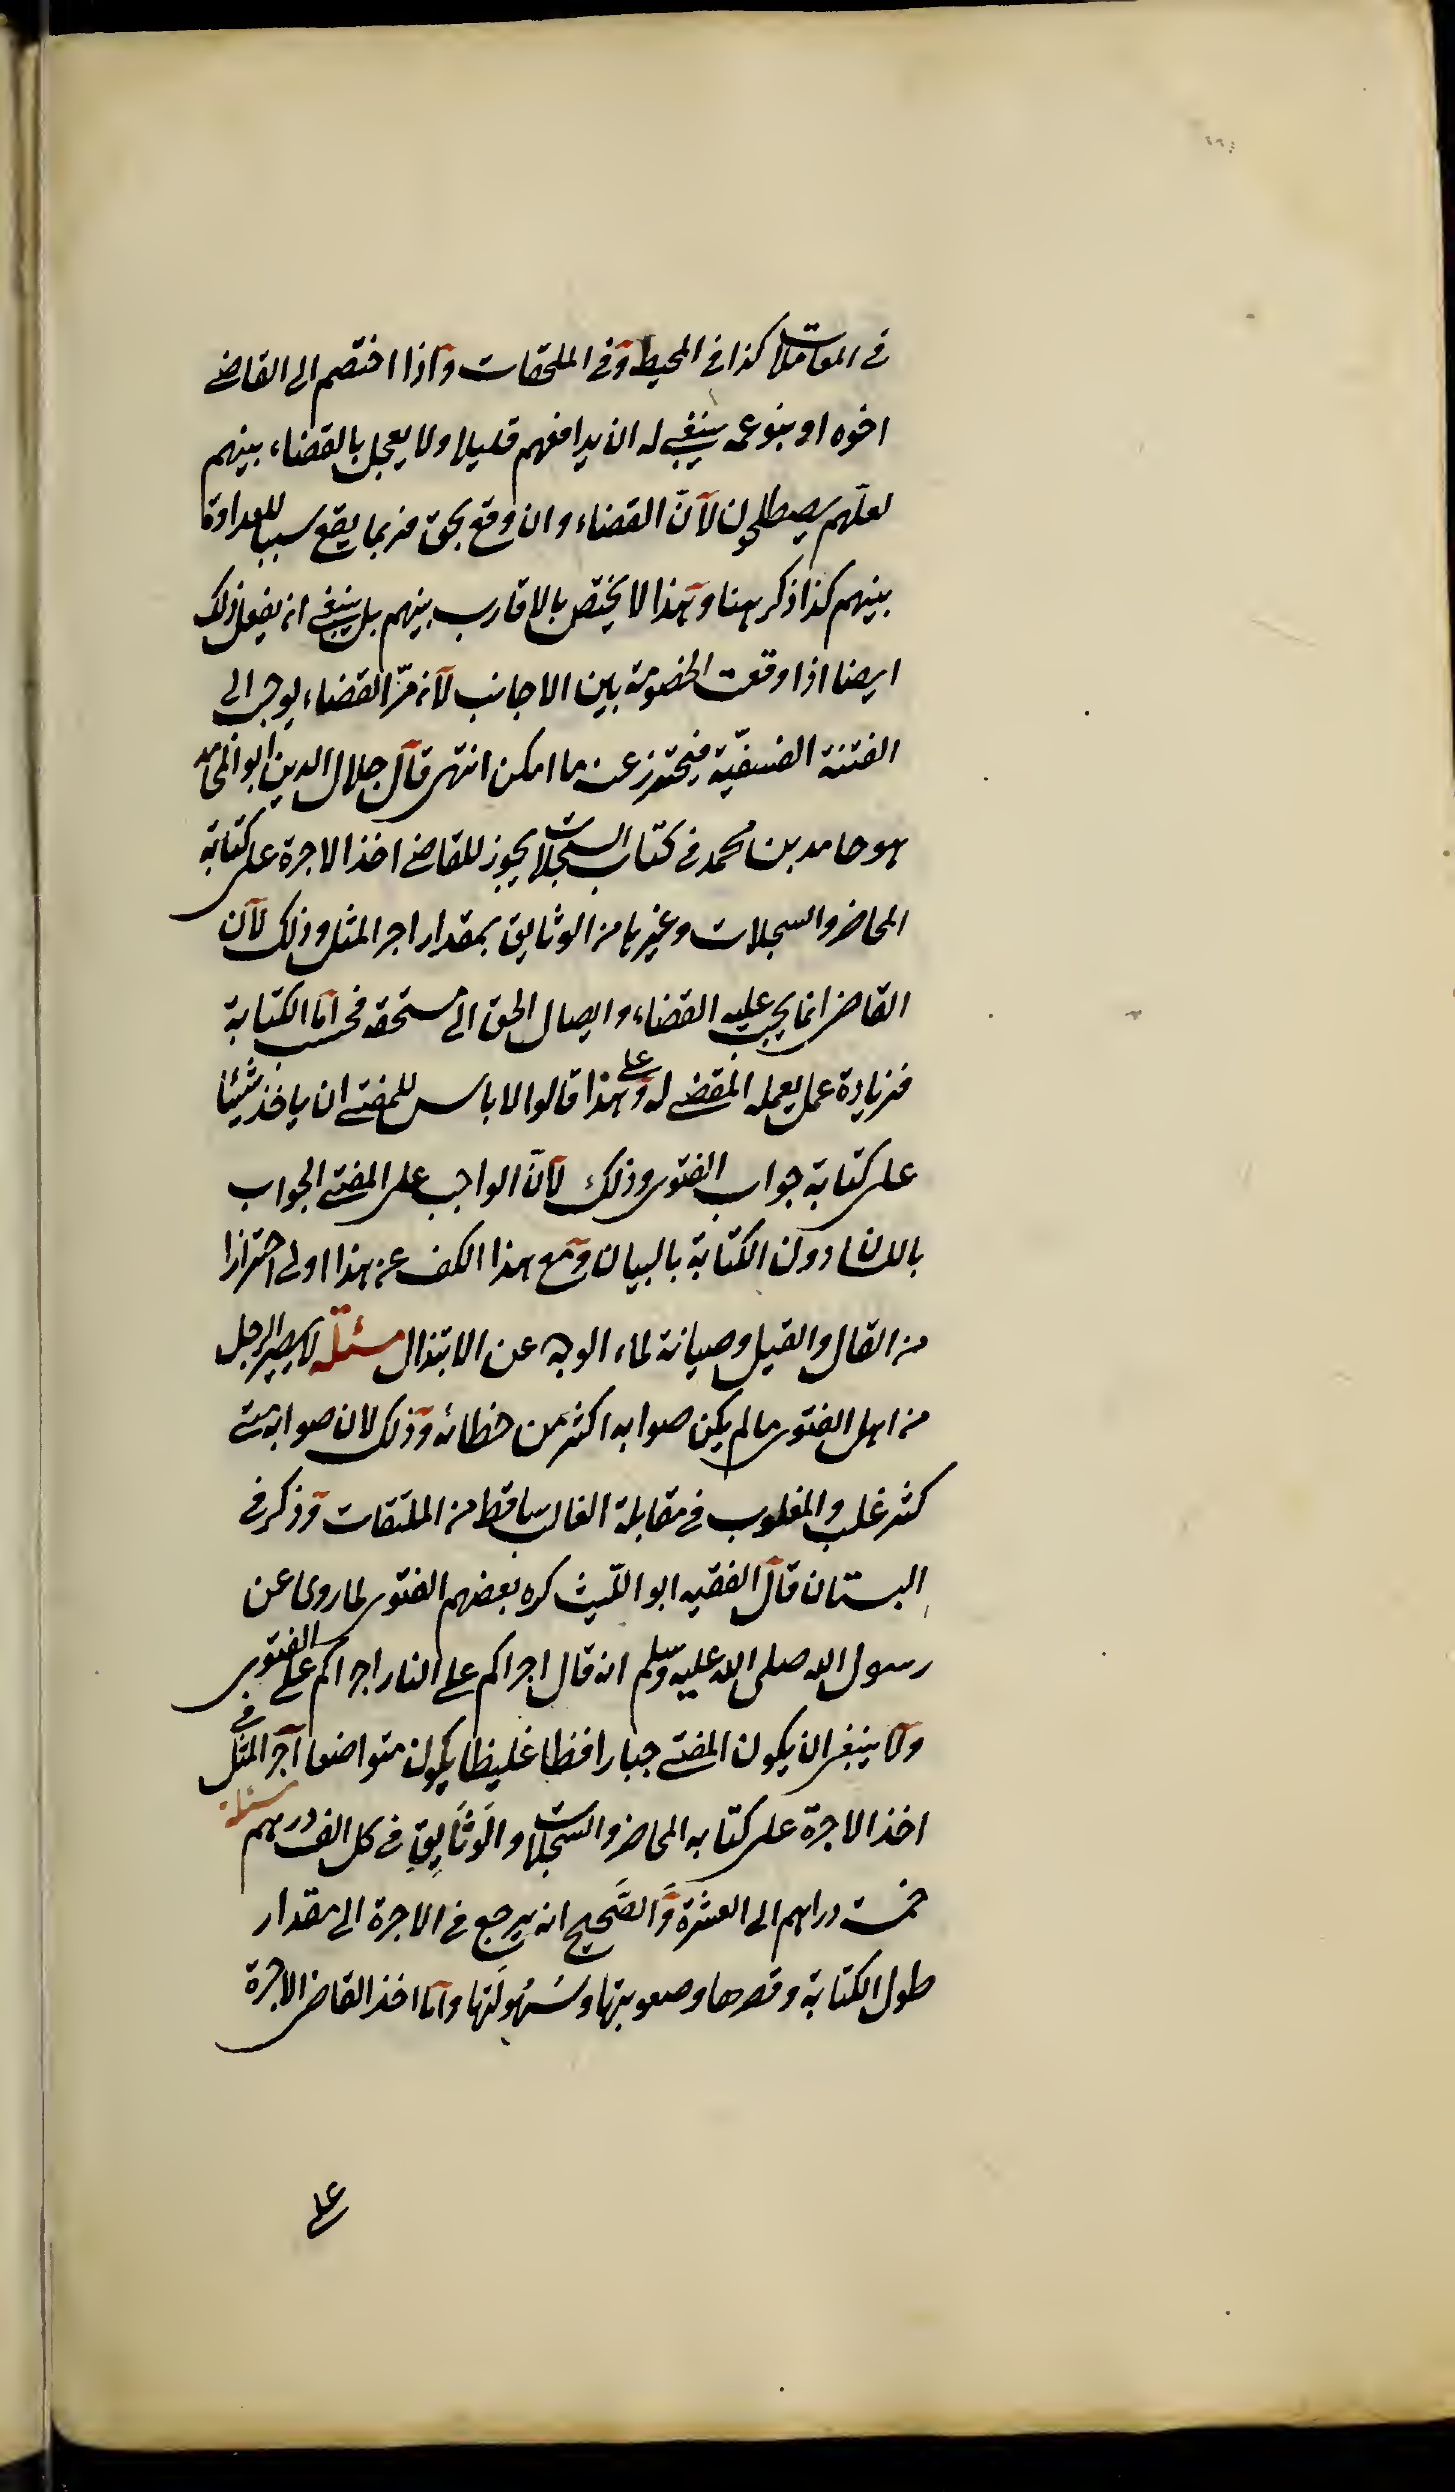 في المعاملات كذا في المحيط وفي الملحقات واذا اختصم الى القاضي
اخوه او بنو عمه ينبغي له ان يدافعهم قليلا ولا يعجل بالقضاء بينهم
لعلهم يصطلحون لانّ القضاء وان وقع بحق فربما يقع سببا للعداوة
بينهم كذا ذكر هنا وهذا لا يختص بالاقارب بينهم بل ينبغي ان يفعل ذلك
ايضا اذا وقعت الخصومة بين الاجانب لان مرّ القضاء يوجب الى
الفتنة فيحترز عنه ما امكن انتهى قال جلال الدين ابو المحامد
هو حامد بن محمد في كتاب السجلات يجوز للقاضي اخذ الاجرة على كتابة
المحاضر والسجلات وغيرها من الوثايق بمقدار اجر المثل وذلك لان
القاضي انما يجب عليه القضاء وايصال الحق الى مستحقه فحسب اما الكتابة
فزيادة عمل يعمله للمقضي له وعلى هذا قالوا لا باس للمفتي ان ياخذ شيئا
على كتابة جواب الفتوى وذلك لانّ الواجب على المفتي الجواب
باللسان دون الكتابة بالبيان ومع هذا الكف عن هذا اولى احترازا
من القال والقيل وصيانة لماء الوجه عن الابتذال مسئلة لا يصير الرجل
من اهل الفتوى ما لم يكن صوابه اكثر من خطائه وذلك لان صوابه متى
كثر غلب والمغلوب في مقابلة الغالب ساقط من الملتقات وذكر في
البستان قال الفقيه ابو اللّيث كره بعضهم الفتوى لما روى عن
رسول الله صلى الله عليه وسلم انه قال اجراكم على النار اجراكم على الفتوى
ولا ينبغي ان يكون المفتي جبارا فظا غليظا يكون متواضعا اجر المثل في
مسئلة
اخذ الاجرة على كتابه المحاضر والسّجلات والوَثَايِقِ في كل الف درهم
خمسة دراهم الى العشرة وَالصَّحِيح انه يرجع في الاجرة الى مقدار
طول الكتابة وقصرها وصعوبتها وسُهُولَتها واما اخذ القاضي الاجرة
على